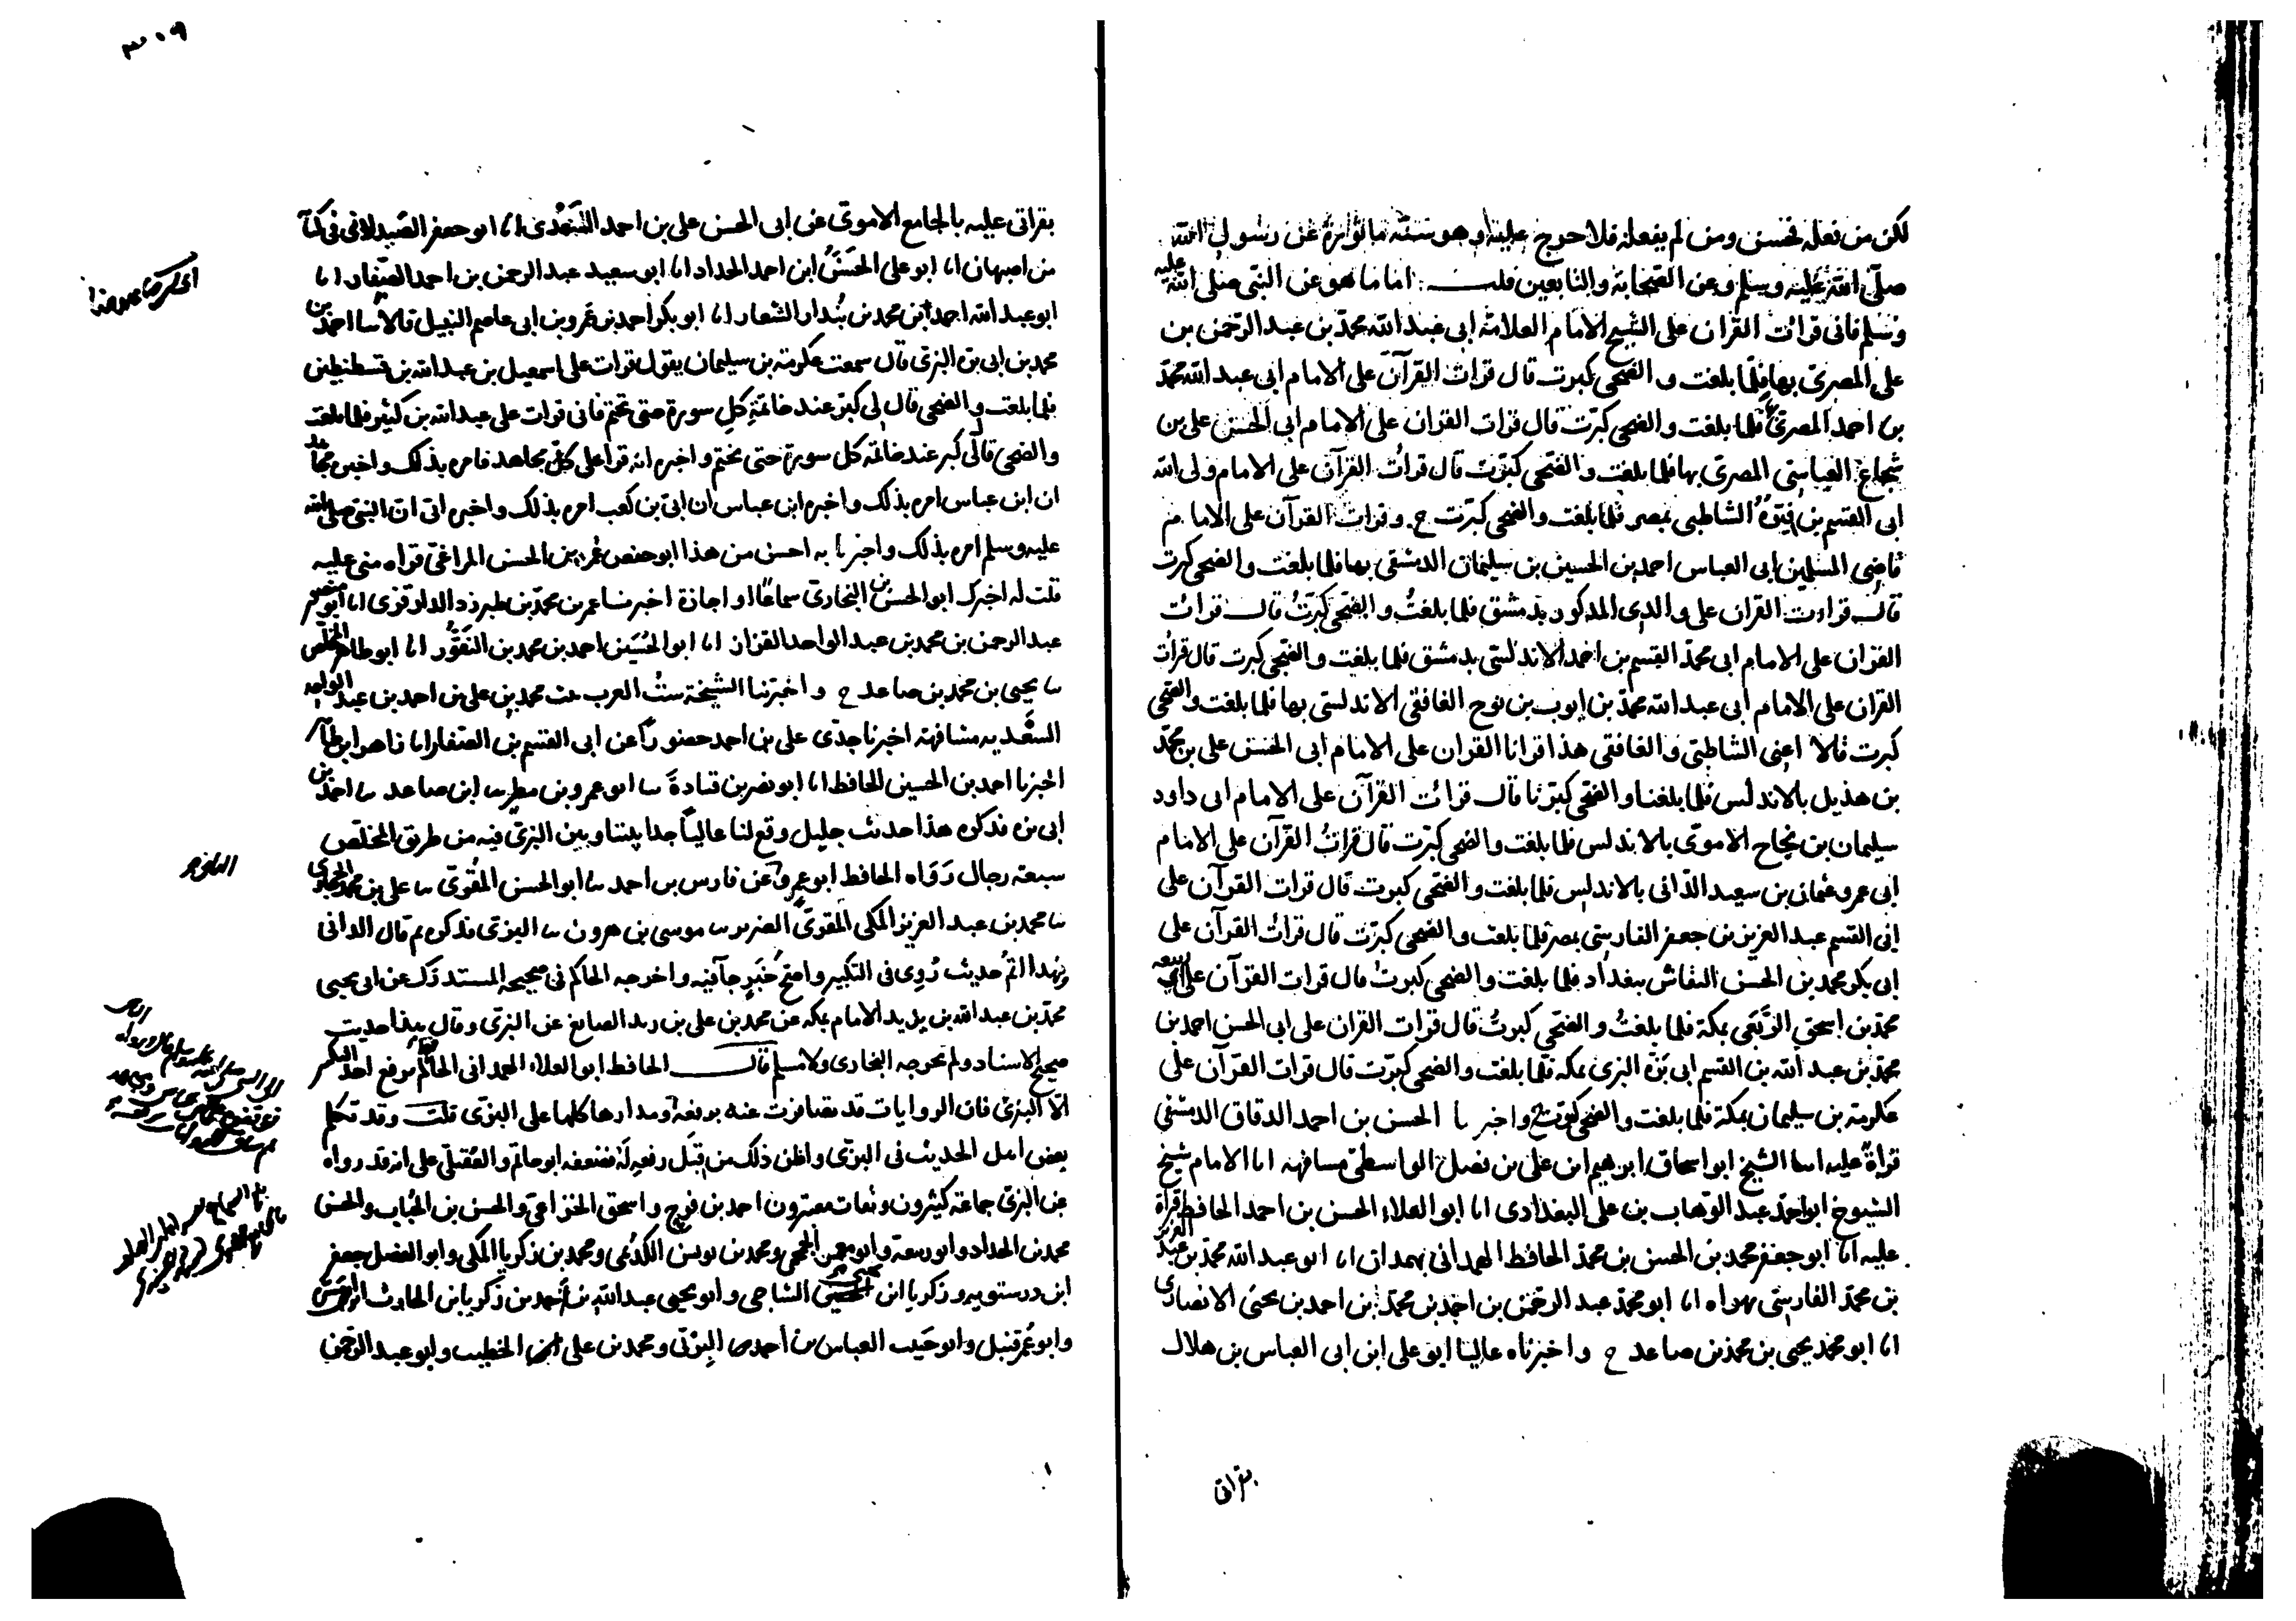 لكن من فعله فحسن ومن لم يفعله فلا حرج عليه وهو سنة مأثورة عن رسول الله
صلى الله عليه وسلم وعن الصحابة والتابعين قلت : اما ما هو عن النبي صلى الله عليه
وسلم فاني قرات القران على الشيخ الامام العلامة ابي عبد الله محمد بن عبد الرحمن بن
على المصرى بها فلما بلغت والضحى كبرت قال قرات القرآن على الامام ابي عبد الله محمد
بن احمد المصرى بها فلما بلغت والضحى كبرت قال قرات القران على الامام ابي الحسن على بن
شجاع العباسي المصرى بها فلما بلغت والضحى كبرت قال قرات القرآن على الامام ولى الله
ابى القسم بن فيره الشاطبى بمصر فلما بلغت والضحى كبرت ح وقرات القرآن على الامام
قاضى المسلمين ابى العباس احمد بن الحسين بن سليمان الدمشقى بها فلما بلغت والضحى كبرت
قال قراءت القران على والدى المذكور بدمشق فلما بلغت والضحى كبرت قال قرات
القران على الامام ابى محمد القسم بن احمد الاندلسى بدمشق فلما بلغت والضحى كبرت قال قرات
القران على الامام ابى عبد الله محمد بن ايوب بن نوح الغافقى الاندلسى بها فلما بلغت والضحى
كبرت قالا اعنى الشاطبى والغافقى هذا قرانا القران على الامام ابى الحسن على بن محمد
بن هذيل بالاندلس فلما بلغنا والضحى كبرنا قال قرات القرآن على الامام ابى داود
سليمان بن نجاح الاموى بالاندلس فلما بلغت والضحى كبرت قال قرات القرآن على الامام
ابى عمرو عثمان بن سعيد الدانى بالاندلس فلما بلغت والضحى كبرت قال قرات القرآن على
ابى القسم عبد العزيز بن جعفر الفارسى بمصر فلما بلغت والضحى كبرت قال قرات القرآن على
ابى بكر محمد بن الحسن النقاش ببغداد فلما بلغت والضحى كبرت قال قرات القرآن على ابي ربيعه
محمد بن اسحق الربعى بمكة فلما بلغت والضحى كبرت قال قرات القران على ابى الحسن احمد بن
محمد بن عبد الله بن القسم ابى بزة البزى بمكه فلما بلغت والضحى كبرت قال قرات القرآن على
عكرمة بن سليمان بمكة فلما بلغت والضحى كبرت ح واخبرنا الحسن بن احمد الدقاق الدمشقى
قراة عليه انا الشيخ ابو اسحاق ابرهيم ابن على بن فضل الواسطى مسافهه انا الامام شيخ
الشيوخ ابو احمد عبد الوهاب بن على البغدادى انا ابو العلاء الحسن بن احمد الحافظ قراة
عليه انا ابو جعفر محمد بن الحسن بن محمد الحافظ الهمدانى بهمدان انا ابو عبد الله محمد بن عبد العزيز
بن محمد الفارسى بهراه انا ابو محمد عبد الرحمن بن احمد بن محمد ابن احمد بن يحيى الانصارى
انا ابو محمد يحيى بن محمد بن صاعد ح واخبرناه عاليا ابو على ابن ابى العباس بن هلال
بقراتى
٣٠٩
بقراتى عليه بالجامع الاموى عن ابى الحسن على بن احمد السعدى انا ابو جعفر الصيدلانى فى كتابه
من اصبهان انا ابو على الحسن ابن احمد الحداد انا ابو سعيد عبد الرحمن بن احمد الصفار انا
ابو عبد الله احمد ابن محمد بن بندار الشعار انا ابو بكر احمد بن عمرو بن ابى عاصم النبيل قالا ثنا احمد بن
محمد بن ابى بزه البزى قال سمعت عكرمة بن سليمان يقول قرات على اسمعيل بن عبد الله بن قسطنطين
فلما بلغت والضحى قال لى كبر عند خاتمة كل سورة حتى تختم فانى قرات على عبد الله بن كثير فلما بلغت
والضحى قال لى كبر عند خاتمه كل سورة حتى تختم واخبره انه قرا على مجاهد فامره بذلك واخبره مجاهد
ان ابن عباس امره بذلك واخبره ابن عباس ان ابى بن كعب امره بذلك واخبره ابى ان النبى صلى الله
عليه وسلم امره بذلك واخبرنا به احسن من هذا ابو حفص عمر بن الحسن المراغى قراه منى عليه
قلت له اخبرك ابو الحسن بن البخارى سماعا او اجازة اخبرنا عمر بن محمد بن طبرزد الدارقزى انا ابو منصور
عبد الرحمن بن محمد بن عبد الواحد القزاز انا ابو الحسين احمد بن محمد بن النقور انا ابو طاهر المخلص
ثنا يحيى بن محمد بن صاعد ح واخبرتنا الشيخة ست العرب بنت محمد بن على بن احمد بن عبد الواحد
السعديه مشافهة اخبرنا جدى على بن احمد حضورا عن ابى القسم بن الصفار انا زاهر ابن طاهر
اخبرنا احمد بن الحسين الحافظ انا ابو نصر بن قتادة ثنا ابو عمرو بن مطر ثنا ابن صاعد ثنا احمد بن
ابى بزه فذكره هذا حديث جليل وقع لنا عاليا جدا بيننا وبين البزى فيه من طريق المخلص
سبعة رجال رواه الحافظ ابو عمرو عن فارس بن احمد ثنا ابو الحسن المقرى ثنا على بن محمد الحجازى
ثنا محمد بن عبد العزيز المكى المقرى الضرير ثنا موسى بن هرون ثنا البزى فذكره ثم قال الدانى
وهذا اتم حديث روى فى التكبير واصح خبر جآ فيه واخرجه الحاكم فى صحيحه المستدرك عن ابى يحيى
محمد بن عبد الله بن يزيد الامام بمكه عن محمد بن على بن زيد الصايغ عن البزى وقال هذا حديث
صحيح الاسناد ولم يخرجه البخارى ولا مسلم قال الحافظ ابو العلاء الهمدانى لم يرفع احد التكبير
الا البزى فان الروايات قد تضافرت عنه برفعه ومدارها كلها على البزى قلت وقد تكلم
بعض اهل الحديث فى البزى واظن ذلك من قبل رفعه له فضعفه ابو حاتم والعقيلى على انه قد رواه
عن البزى جماعة كثيرون وثقات معتبرون احمد بن فرح واسحق الخزاعى والحسن بن الحباب والحسن
محمد بن الحداد وابو ربيعة وابو معمر الجمحى ومحمد بن يونس الكديمى ومحمد بن زكريا المكى وابو الفضل جعفر
ابن درستويه وزكريا ابن يحيى الساجى وابو يحيى عبد الله بن احمد بن زكريا بن الحارث ابن ابى مسرة
وابو عمر قنبل وابو حبيب العباس بن احمد البرتى ومحمد بن على الخطيب وابو عبد الرحمن